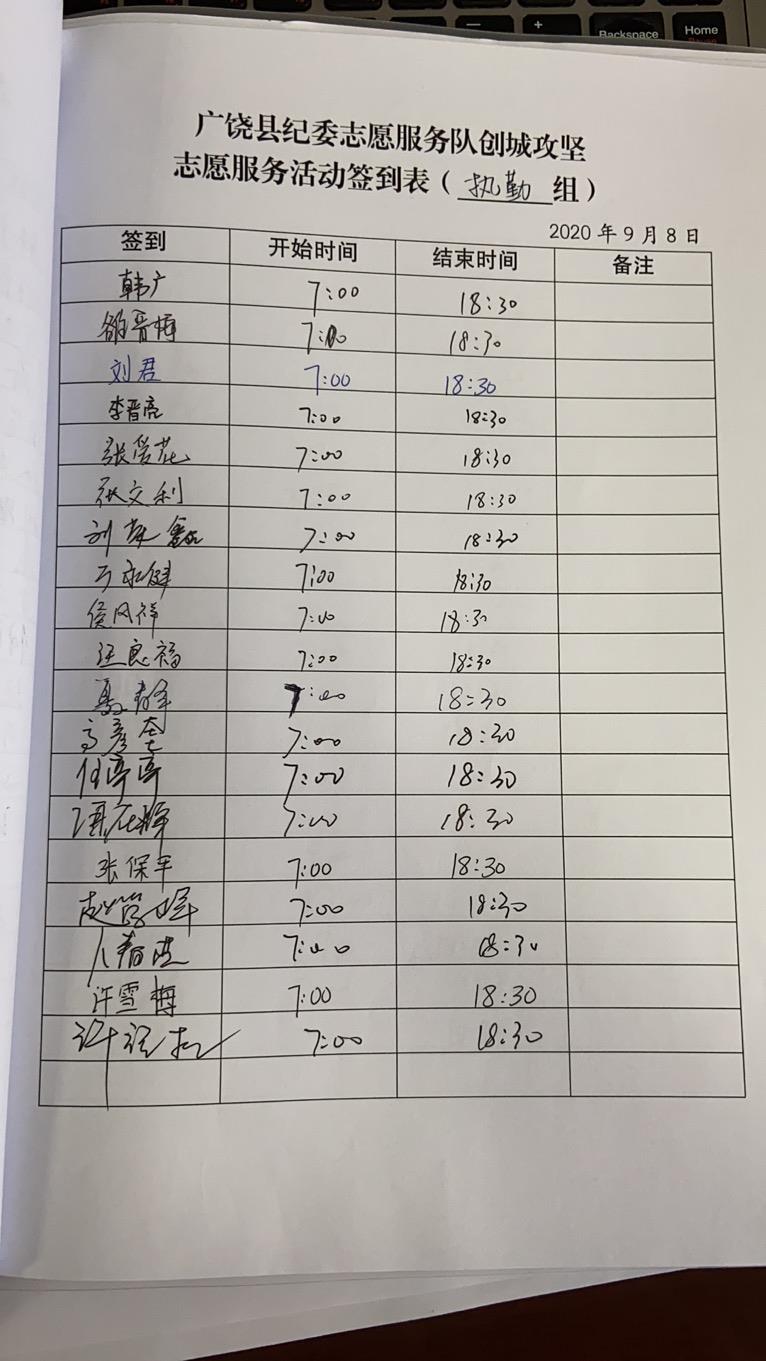 Backspace
Home
广饶县纪委志愿服务队创城攻坚
志愿服务活动签到表（执勤组）
2020年9月8日
签到 开始时间 结束时间 备注
韩广 7:00 18:30
邵晋梅 7:00 18:30
刘君 7:00 18:30
李晋亮 7:00 18:30
张爱花 7:00 18:30
张文利 7:00 18:30
刘 7:00 18:30
永健 7:00 18:30
侯风祥 7:00 18:30
汪良福 7:00 18:30
7:00 18:30
高彦 7:00 18:30
任亭亭 7:00 18:30
7:00 18:30
张保平 7:00 18:30
赵 7:00 18:30
7:00 18:30
许雪梅 7:00 18:30
许 7:00 18:30